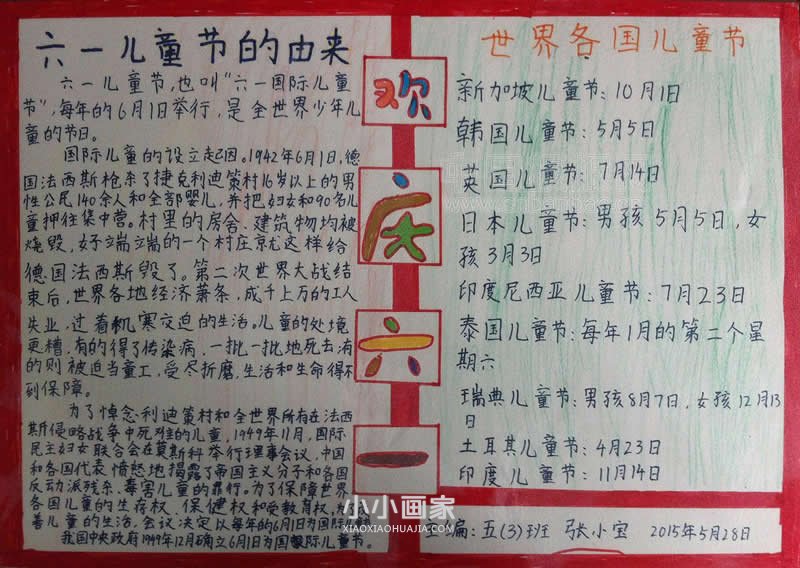 六一儿童节的由来
六一儿童节,也叫“六一国际儿童
节”,每年的6月1日举行,是全世界少年儿
童的节日。
国际儿童的设立起因。1942年6月1日,德
国法西斯枪杀了捷克利迪策村16岁以上的男
性公民140余人和全部婴儿,并把妇女和90名儿
童押往集中营。村里的房舍、建筑物均被
烧毁,好端端的一个村庄就这样给
德国法西斯毁了。第二次世界大战结
束后,世界各地经济萧条,成千上万的工人
失业,过着饥寒交迫的生活。儿童的处境
更糟,有的得了传染病,一批一批地死去;有
的则被迫当童工,受尽折磨,生活和生命得不
到保障。
为了悼念利迪策村和全世界所有在法西
斯侵略战争中死难的儿童,1949年11月,国际
民主妇女联合会在莫斯科举行理事会议,中国
和各国代表愤怒地揭露了帝国主义分子和各国
反动派残杀、毒害儿童的罪行。为了保障世界
各国儿童的生存权、保健权和受教育权,
善儿童的生活,会议决定以每年的6月1日为国际
我国中央政府1949年12月确立6月1日为国际儿童节。
欢
庆
六
一
世界各国儿童节
新加坡儿童节:10月1日
韩国儿童节:5月5日
英国儿童节:7月14日
日本儿童节:男孩5月5日,女
孩3月3日
印度尼西亚儿童节:7月23日
泰国儿童节:每年1月的第二个星
期六
瑞典儿童节:男孩8月7日,女孩12月13
日
土耳其儿童节:4月23日
印度儿童节:11月14日
主编:五(3)班 张小宝 2015年5月28日
小小画家
XIAOXIAOHUAJIA.COM